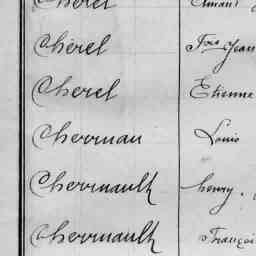 Chérel
Chérel Fçois Jean
Chérel Etienne
Cherruau Louis
Cherruault henry.
Cherruault François